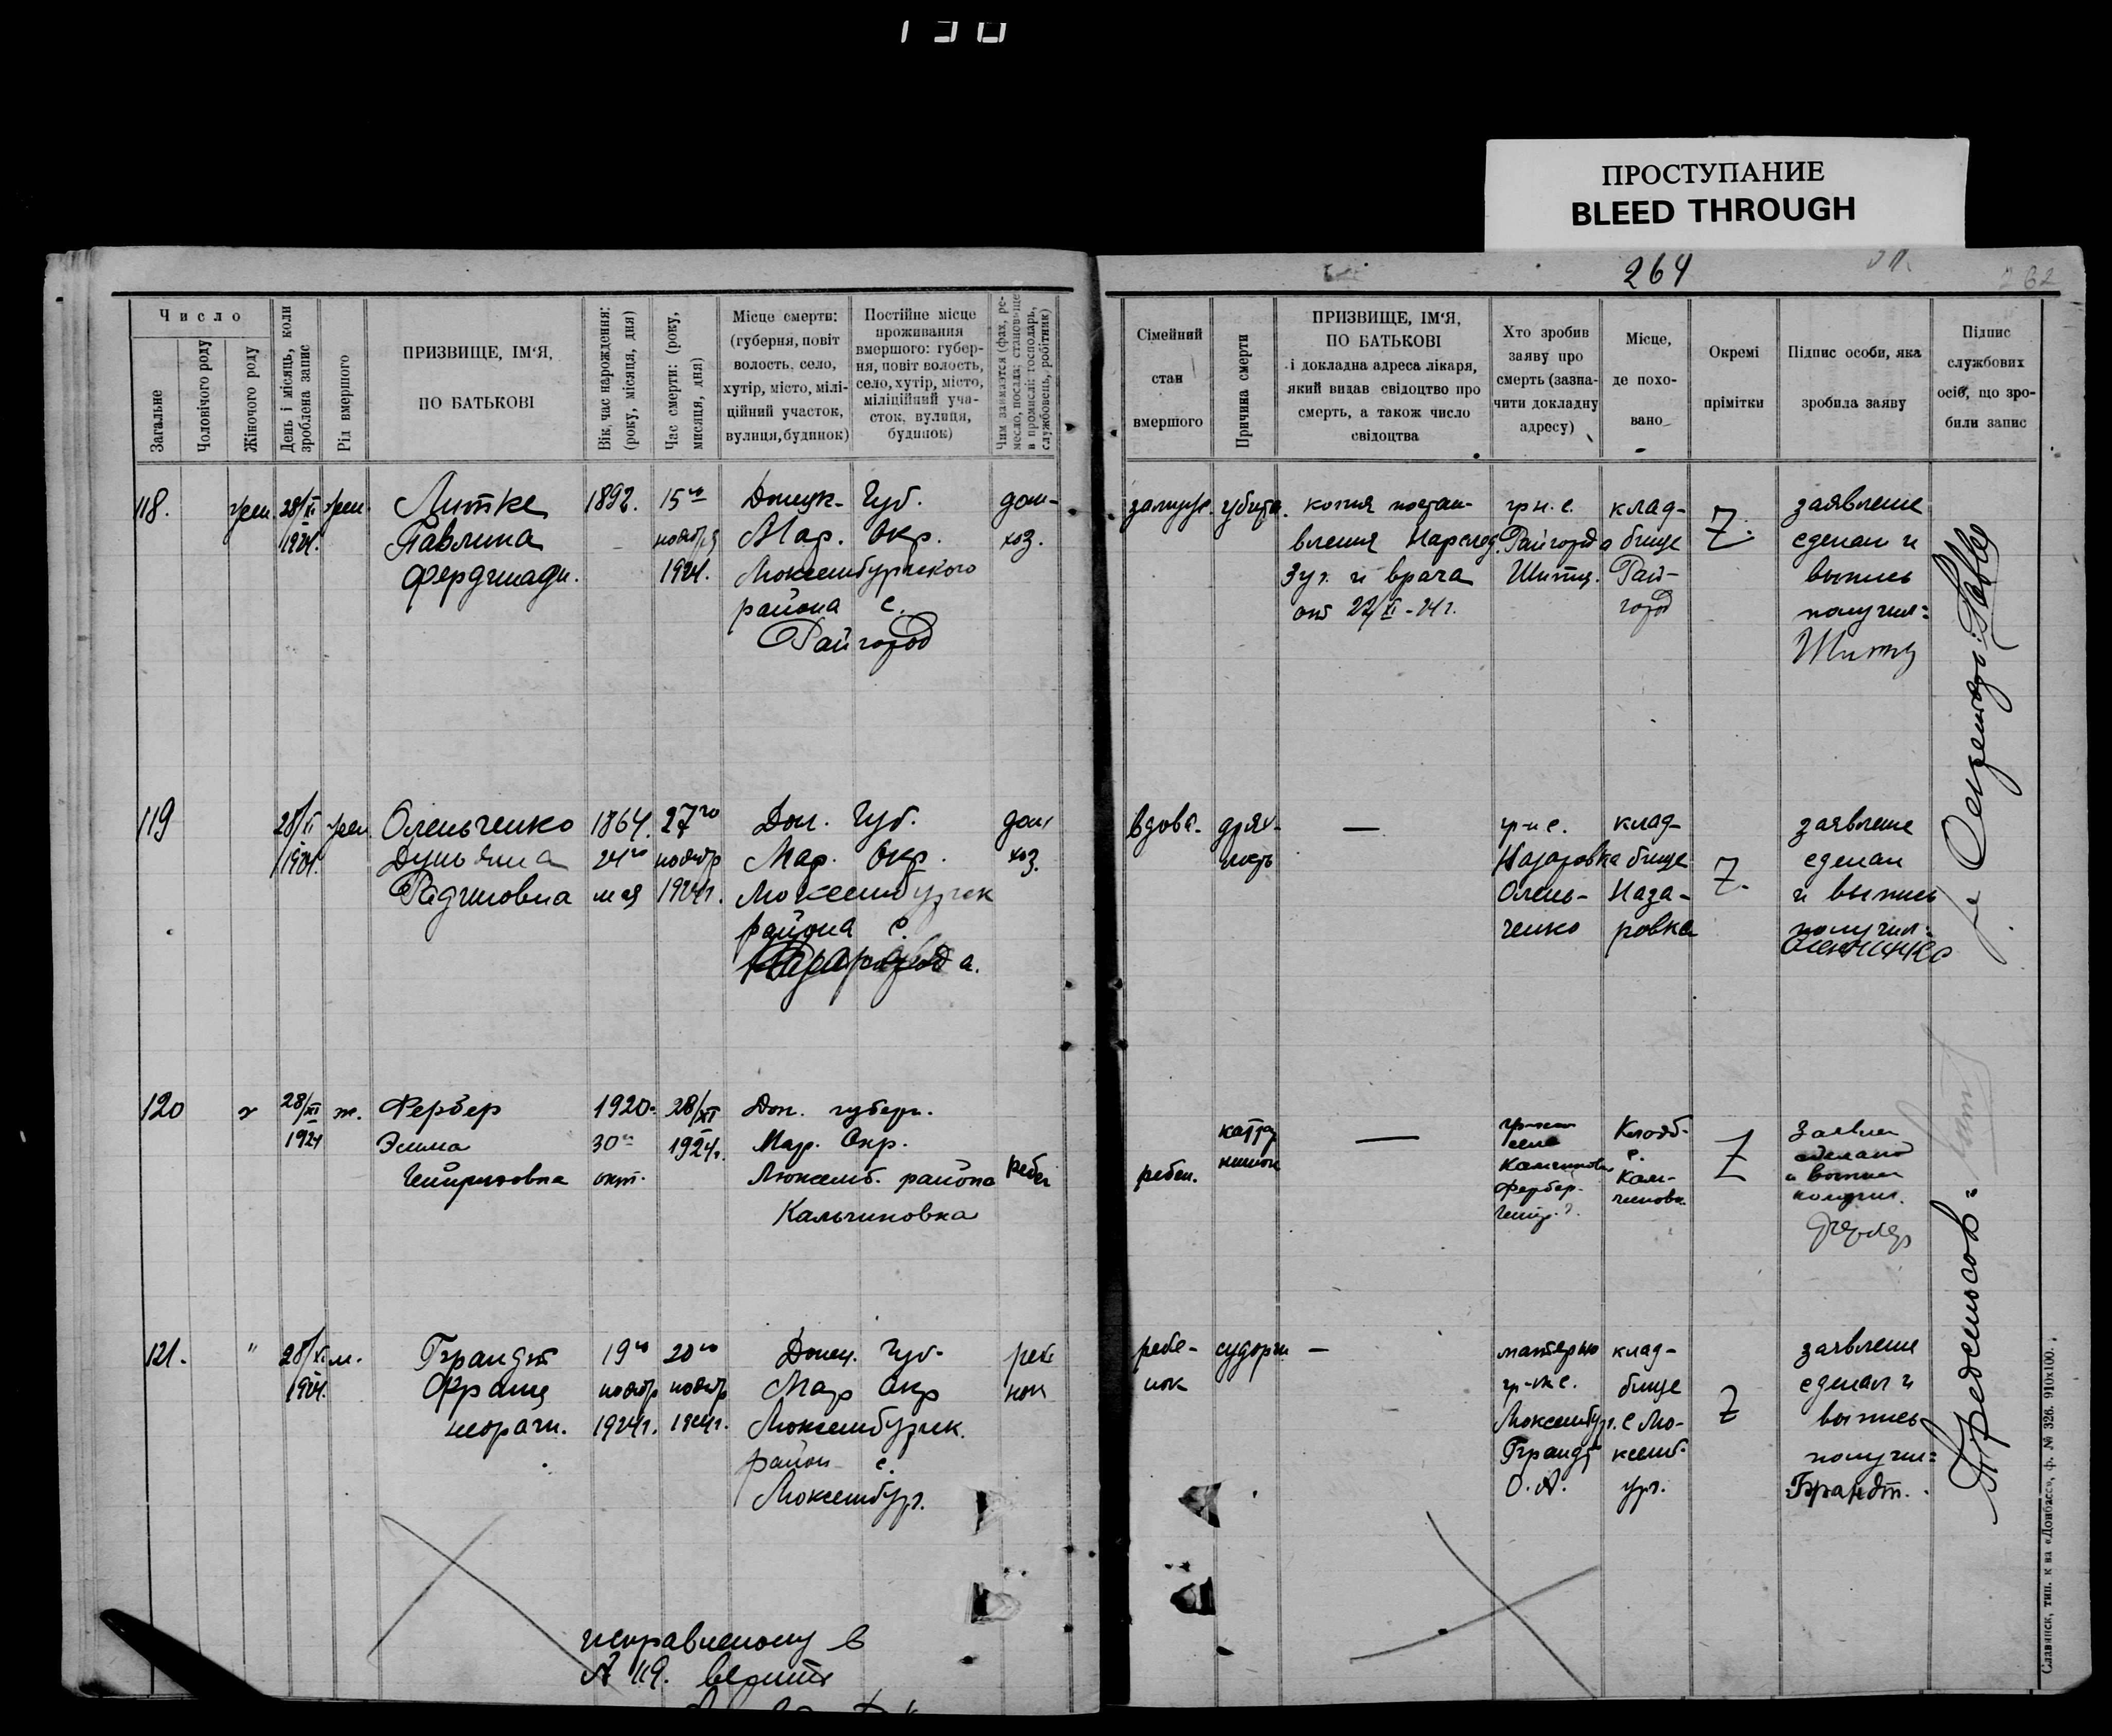 198
ПРОСТУПАНИЕ
BLEED THROUGH
264
262
Число
Загальне
Чоловічого роду
Жіночого роду
День і місяць, коли
зроблена запис
Рід вмершого
ПРИЗВИЩЕ, ІМ'Я,
ПО БАТЬКОВІ
Вік, час нарождення:
(року, місяця, дня)
Час смерти: (року,
мисяця, дня)
Місце смерти:
(губерня, повіт
волость, село,
хутір, місто, мілі-
ційний участок,
вулиця, будинок)
Постійне місце
проживання
вмершого: губер-
ня, повіт волость,
село, хутір, місто,
міліційний уча-
сток, вулиця,
будинок)
Чим займается (фах, ре-
месло, посада: становище
в промислі: господарь,
службовець, робітник)
Сімейний
стан
вмершого
Причина смерти
ПРИЗВИЩЕ, ІМ'Я,
ПО БАТЬКОВІ
і докладна адреса лікаря,
який видав свідоцтво про
смерть, а також число
свідоцтва
Хто зробив
заяву про
смерть (зазна-
чити докладну
адресу)
Місце,
де похо-
вано
Окремі
прімітки
Підпис особи, яка
зробила заяву
Підпис
службових
осіб, що зро-
били запис
118.
жен.
28/XI
1924.
жен.
Литке
Павлина
Фердинадн.
1892.
15го
ноября
1924.
Донецк. Губ.
Мар. Окр.
Люксембургского
района с.
Райгород
дом-
хоз.
замуж.
убита.
копия постан-
вления Нарслед.
3 уч. и врача
от 22/XI-24г.
гр-н с.
Райгород
Шитц.
клад-
бище
Рай-
город
заявление
сделал и
выпись
получил:
Шитц
119
28/XI
1924.
жен.
Оленьченко
Радионовна
1864.
24го
мая
27го
ноябр
1924г.
Дон. Губ.
Мар. Окр.
Люксембургск
района с.
дом
хоз.
вдова.
дрях-
лость
—
гр-н с.
Назаровка
Олень-
ченко
клад-
бище
Наза-
ровка
заявление
сделал
и выпись
получил:
120
28/XI
1924
ж.
Фербер
Эмма
Гейнриховна
1920.
30го
окт.
28/XI
1924г.
Дон. губерн.
Мар. Окр.
Люксемб. района
Кальчиновка
ребен
ребен.
—
села
Кальчиновк
Фербер
Кладб.
с.
Каль-
чиновк
Заявлен
сделано
и выписи
получил.
Фербер
121.
"
28/XI
1924.
м.
Брандт
Франц
19го
ноябр
1924г.
20го
ноябр
1924г.
Донец. Губ.
Мар Окр
Люксембургск.
район с.
Люксембург.
ребе
нок
ребе-
нок
судорги
—
матерью
гр-ка с.
Люксембург.
Брандт
О. А.
клад-
бище
с Лю-
ксемб-
ург.
заявление
сделал и
выпись
получил:
Брандт.
исправленому в
№ 119. верить
Славянск, тип. к ва «Донбасс», ф. № 326. 910х100.